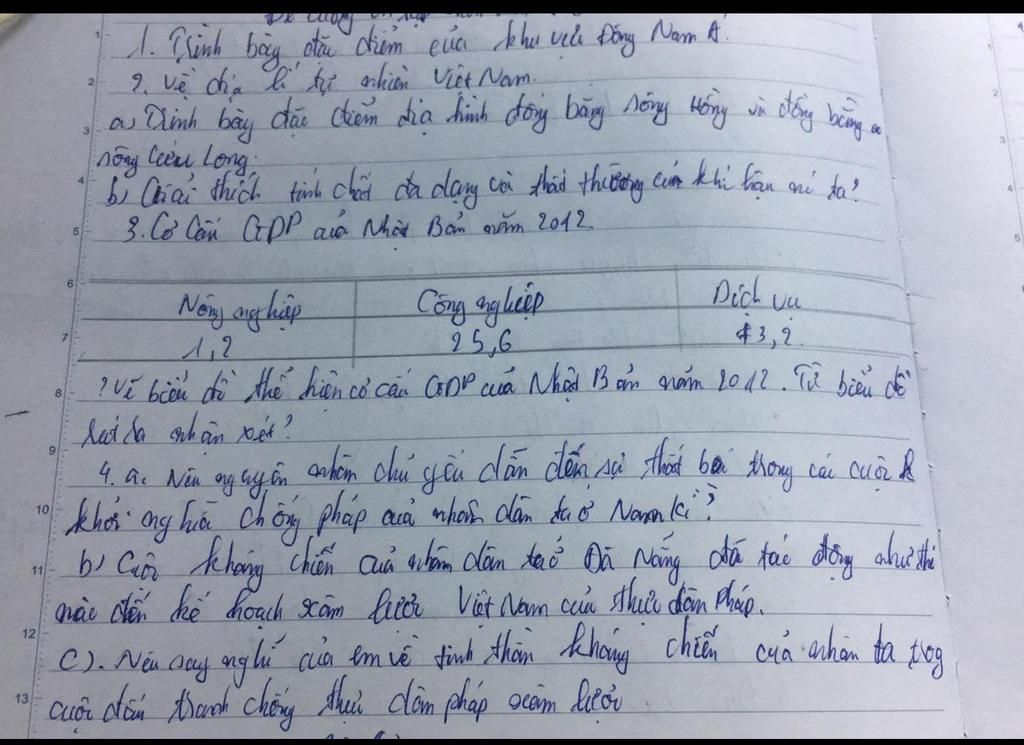 Đề cương ôn tập
1. Trình bày đặc điểm của khu vực Đông Nam Á.
2. Về địa lí tự nhiên Việt Nam.
a) Trình bày đặc điểm địa hình đồng bằng sông Hồng và đồng bằng
sông Cửu Long.
b) Giải thích tính chất đa dạng và thất thường của khí hậu nc ta?
3. Cơ cấu GDP của Nhật Bản năm 2012.
Nông nghiệp Công nghiệp Dịch vụ
1,2 25,6 73,2
? Vẽ biểu đồ thể hiện cơ cấu GDP của Nhật Bản năm 2012. Từ biểu đồ
rút ra nhận xét?
4. a. Nêu nguyên nhân chủ yếu dẫn đến sự thất bại trong các cuộc k
khởi nghĩa chống pháp của nhân dân ta ở Nam kì?
b) Cuộc kháng chiến của nhân dân ta ở Đà Nẵng đã tác động như thế
nào đến kế hoạch xâm lược Việt Nam của thực dân Pháp.
C). Nêu suy nghĩ của em về tinh thần kháng chiến của nhân ta trog
cuộc đấu tranh chống thực dân pháp xâm lược